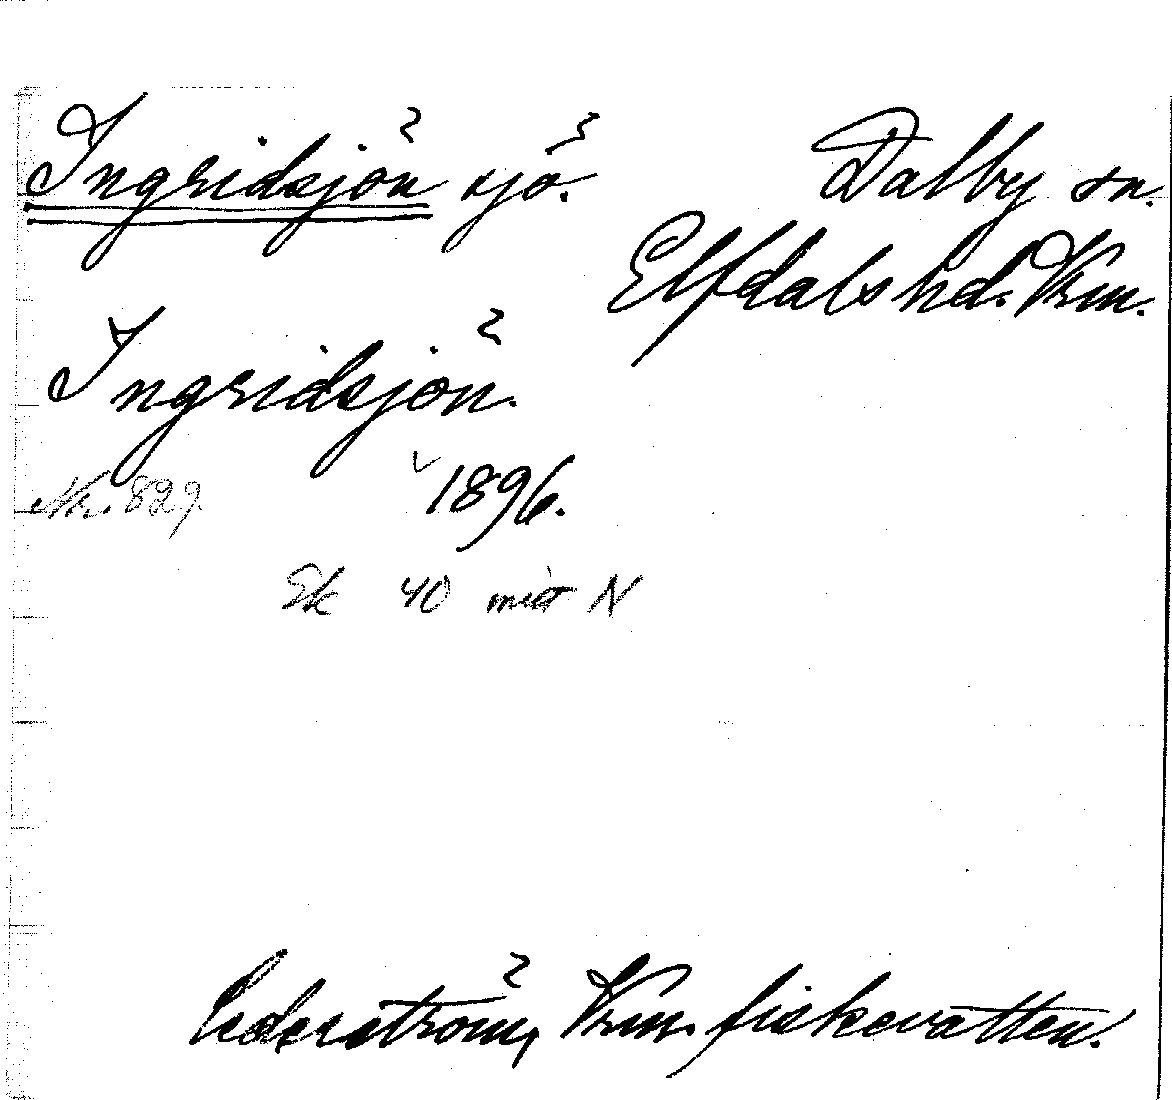 Ingridsjön sjö. Dalby sn.
Elfdals hd. Vrm.
Ingridsjön.
Nr. 829. 1896.
Ek 40 mitt N
Cederström, Vrm. fiskevatten.